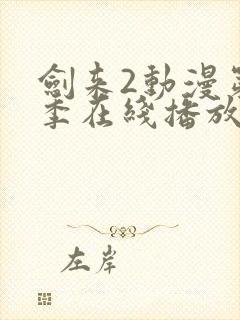 劍来2動漫第
季在綫播放
左岸